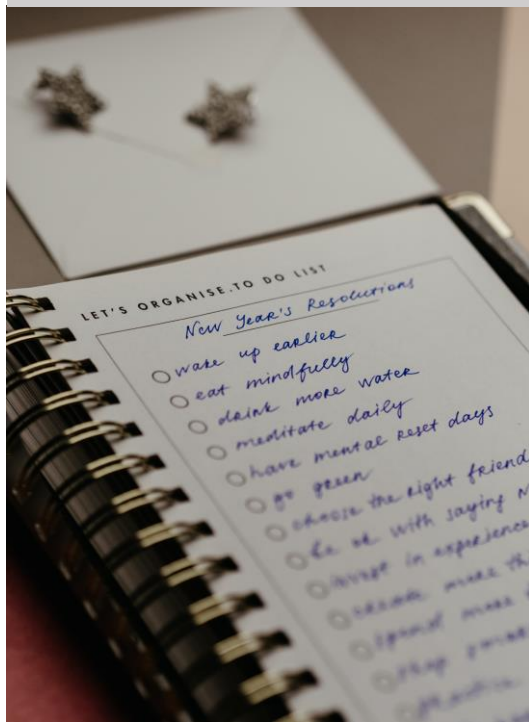 LET'S ORGANISE.TO DO LIST
New Year's Resolutions
wake up earlier
eat mindfully
drink more water
meditate daily
have mental reset days
go green
choose the right friend
be ok with saying
invest in experience
create more
spend more
stop
practice